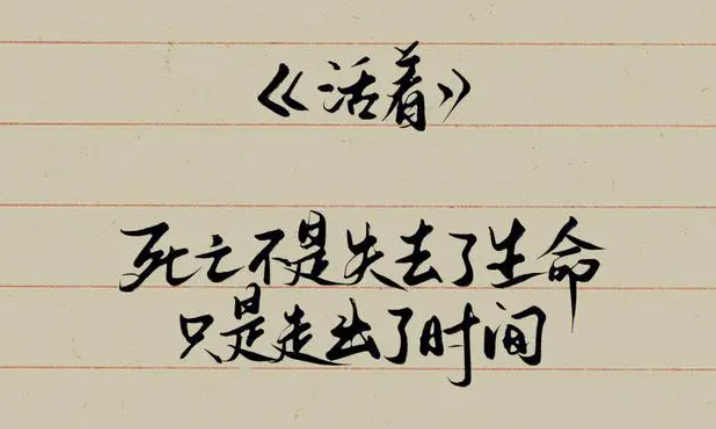 《活着》
死亡不是失去了生命
只是走出了时间